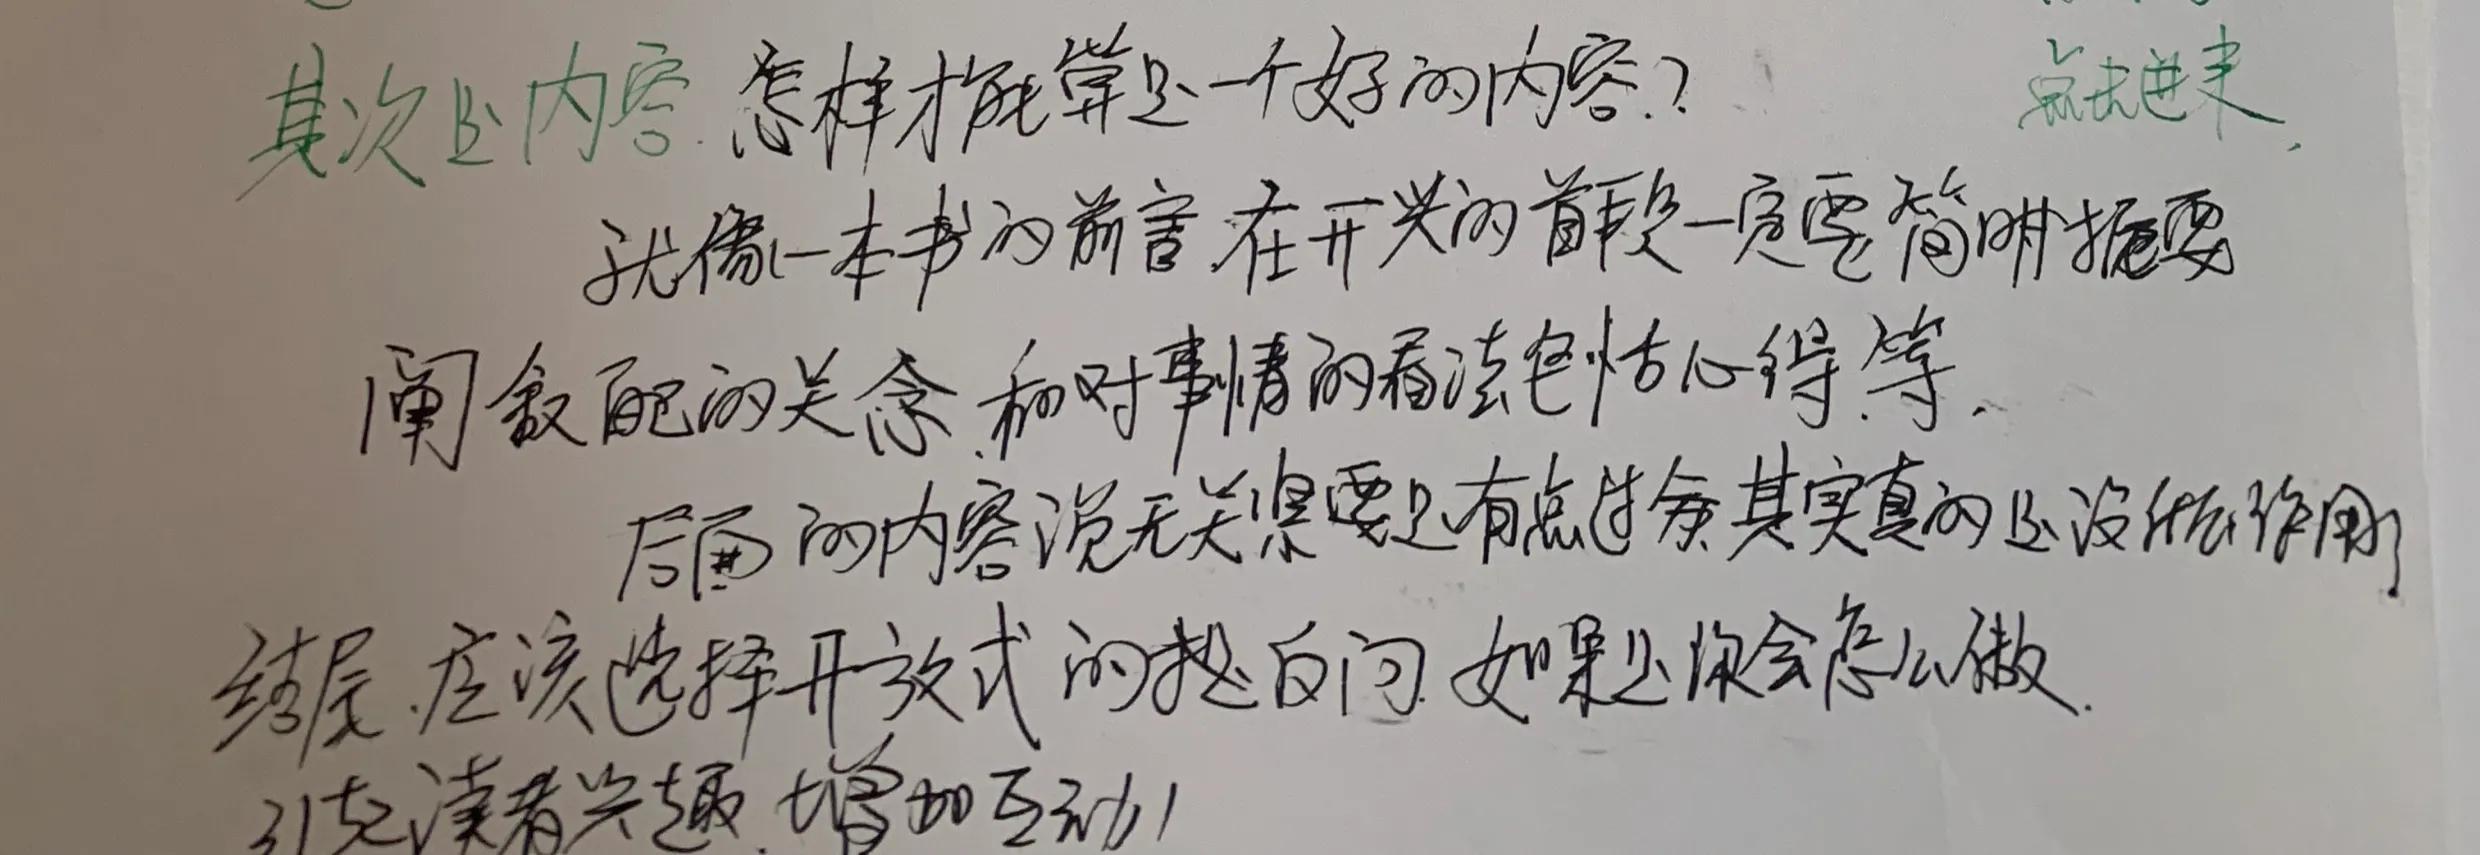 其次是内容.怎样才能算是一个好的内容.?
点击进来,
就像一本书的前言.在开头的首段一定要简明扼要
阐叙自己的关念.和对事情的看法包括心得.等.
后面的内容说无关紧要是有点过余其实真的是没什么作用
结尾.应该选择开放式的提自问.如果是你会怎么做.
引起读者兴趣.增加互动